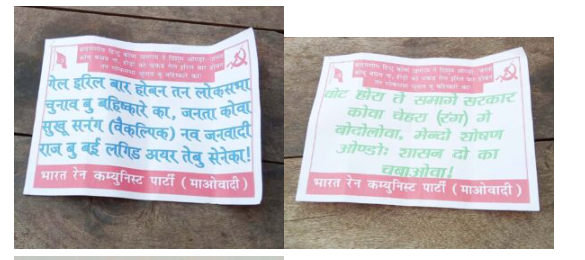 गेल इरिल बार होबन तन लोकसभा
चुनाव बु बहिष्कारे का, जनता कोवा
सुखू सनंग (वैकल्पिक) नव जनवादी
राज बु बई लगिड अयर तेबु सेनेका!
भारत रेन कम्युनिस्ट पार्टी ( माओवादी )
वोट होरा ते समागे सरकार
कोवा चेहरा (रंग) गे
बोदोलोवा, मेन्दो शोषण
ओण्डोः शासन दो का
चबाओवा!
भारत रेन कम्युनिस्ट पार्टी ( माओवादी )